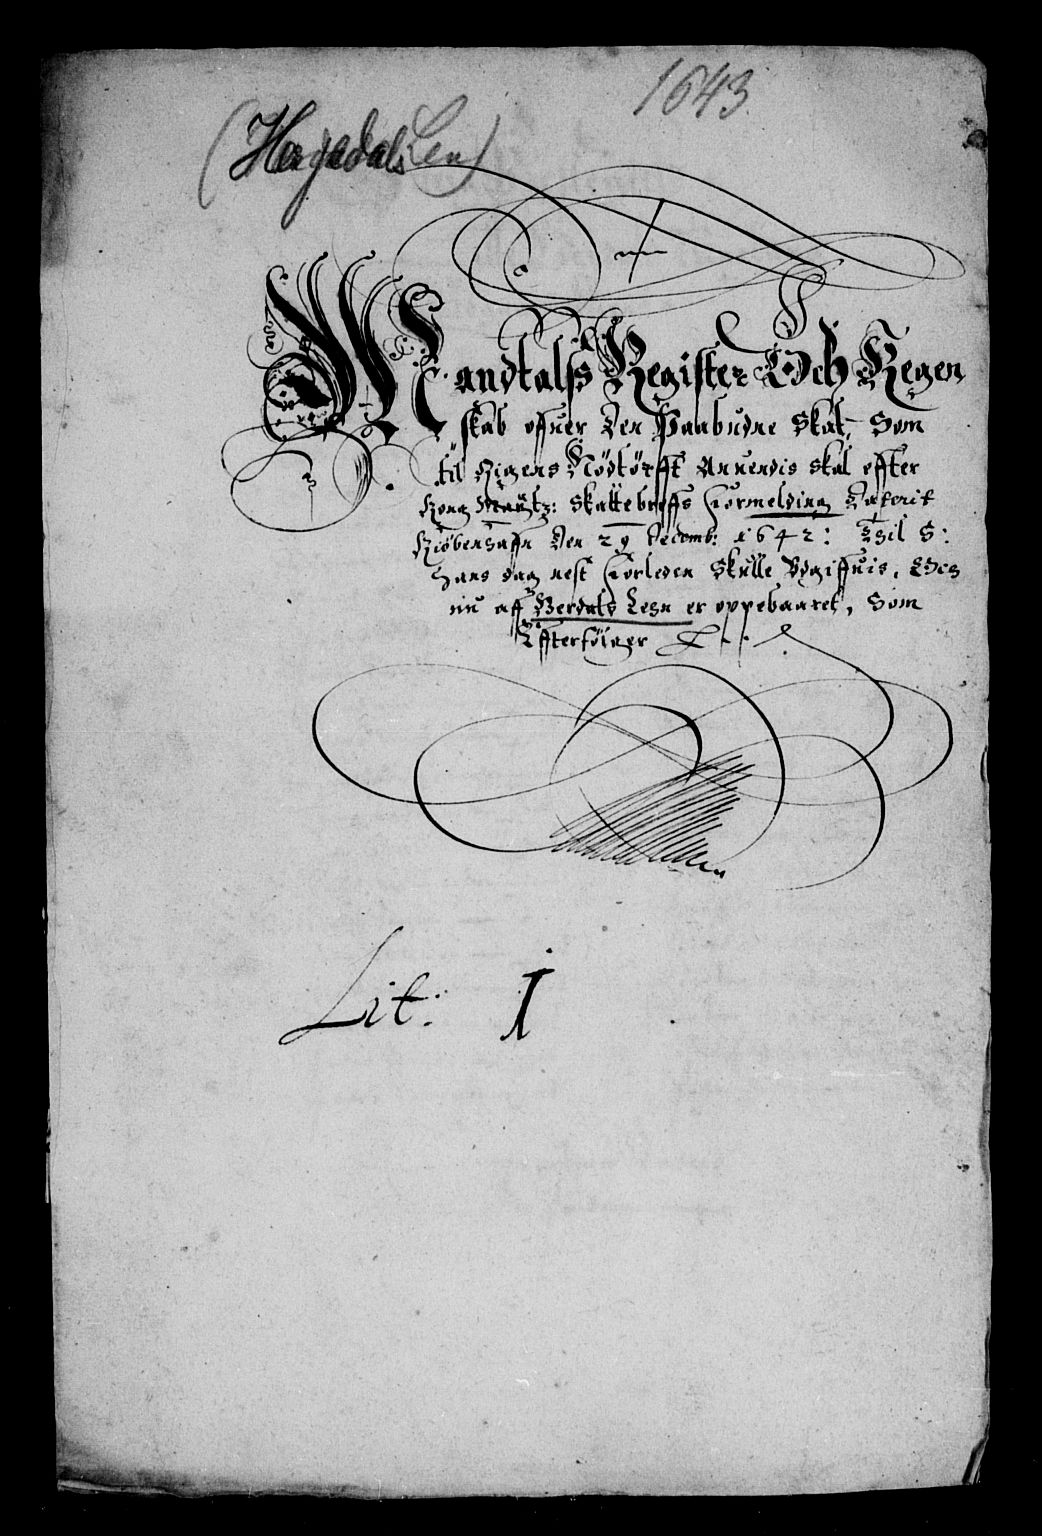 1643
(Herjedals Len)
Mandtalss Register Och Regen
skab offuer Den Paabudne Skat, Som
til Rigens Nödtörfft Anuendis skal effter
Kong Maytz: Skattebreffs Formelding Daterit
Kiöbenhaffn Den 29 Decemb: 1642: Thil S:
Hans dag nest Forleden Skulle Vdgiffuis, Och
nu aff Herdals Lehn er oppebaaret, Som
Effterfölger
Lit: I